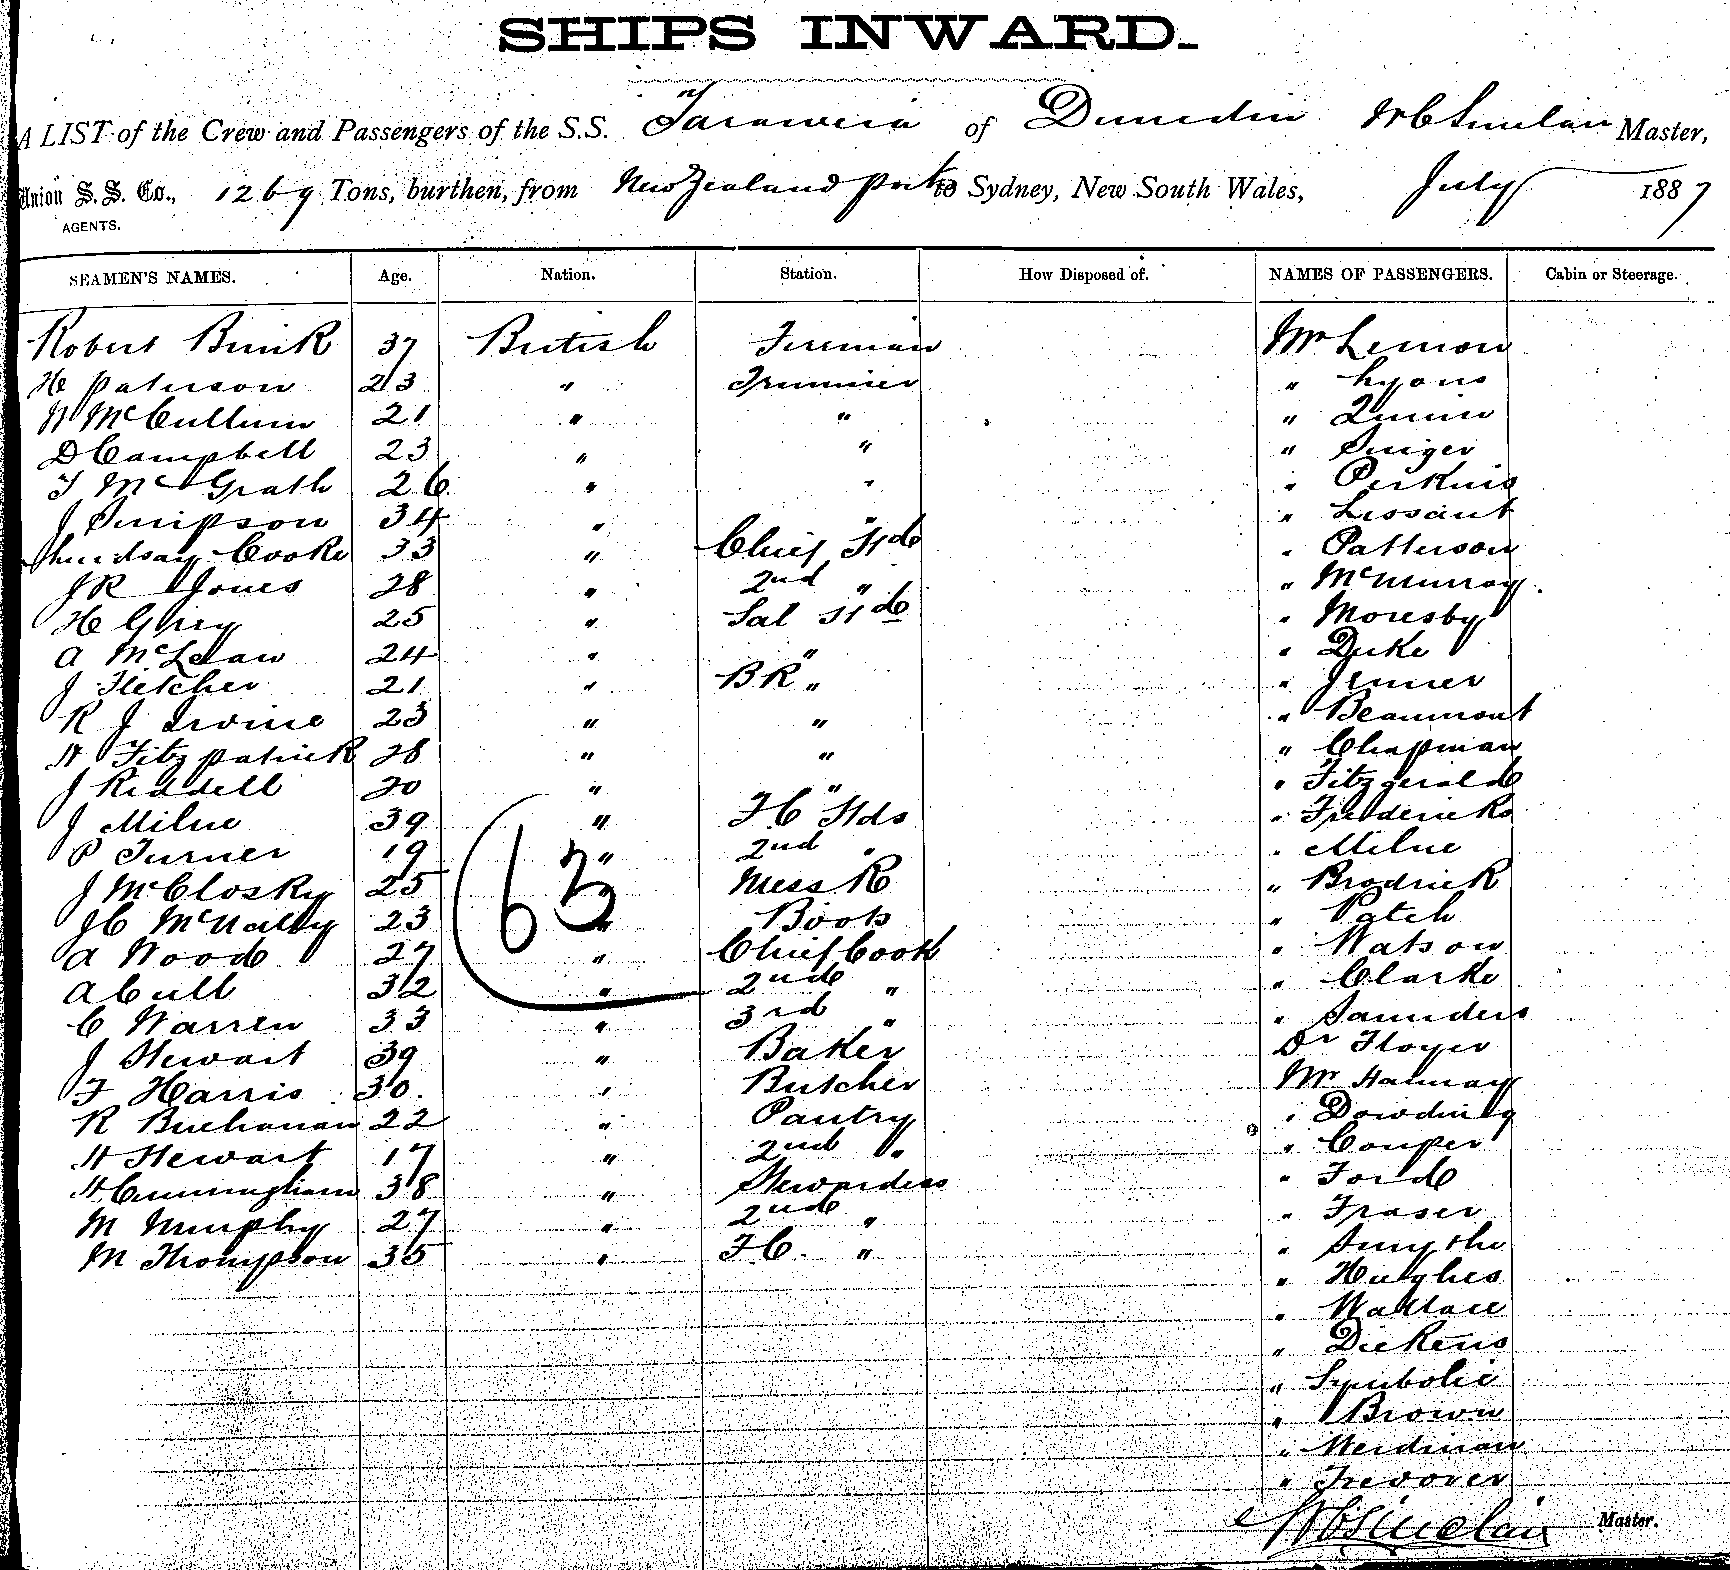 SHIPS INWARD.
A LIST of the Crew and Passengers of the S.S. Tarawera of Dunedin W C Sinclair Master,
Union S. S. Co., 1269 Tons, burthen, from New Zealand Ports to Sydney, New South Wales, July 1887
AGENTS.
SEAMEN'S NAMES. Age. Nation. Station. How Disposed of. NAMES OF PASSENGERS. Cabin or Steerage.
Robert 37 British Fireman Mr Lemon
H Paterson 23 " Trimmer " Lyons
McCullum 21 " " " Quinn
D Campbell 23 " " " Singer
T McGrath 26 " " " Perkins
J Simpson 34 " " " Lissant
Lindsay Cooke 33 " Chief Std " Patterson
J R Jones 28 " 2nd " " McMurray
H Grey 25 " Sal Std " Moresby
A McLean 24 " " " Duke
J Fletcher 21 " BR " " Jenner
R J Irvine 23 " " " Beaumont
Fitzpatrick 28 " " " Chapman
J Riddell 20 " " " Fitzgerald
J Milne 39 " FC Stds " Fredericks
P Turner 19 " 2nd " " Milne
J McClosky 25 " Mess R " Brodrick
J C McNally 23 " Boots " Patch
A Wood 27 " Chief Cook " Watson
A Cull 32 " 2nd " " Clarke
C Warren 33 " 3rd " " Saunders
J Stewart 39 " Baker Dr Floyer
F Harris 30 " Butcher Mr Hannay
R Buchanan 22 " Pantry " Dowding
Stewart 17 " 2nd " " Couper
Cunningham 38 " Stewardess " Ford
M Murphy 27 " 2nd " " Fraser
M Thompson 35 " FC " " Smythe
63
" Hughes
" Wallace
" Dickens
" Symbolic
" Brown
" Merdman
" Trevorer
W C Sinclair Master.